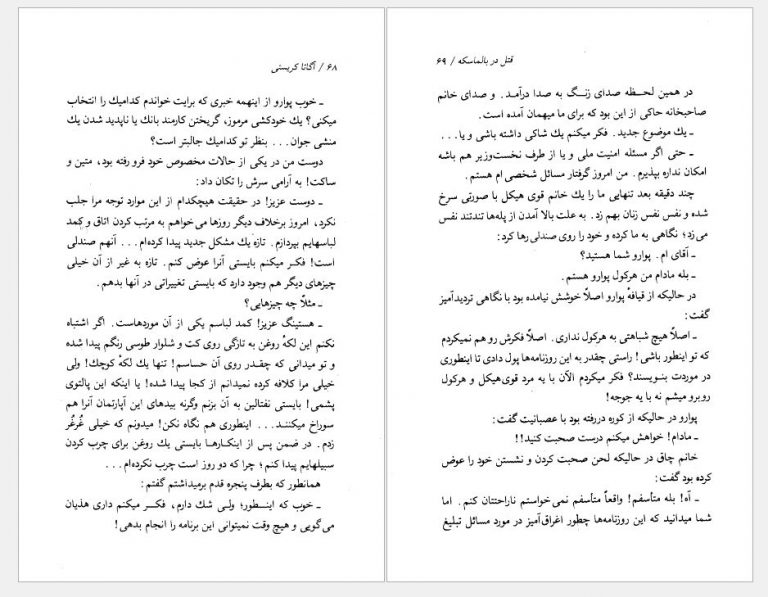 ۶۸ / آگاتا کریستی
ـ خوب پوارو از اینهمه خبری که برایت خواندم کدامیك را انتخاب
میکنی؟ یك خودکشی مرموز، گریختن کارمند بانك یا ناپدید شدن یك
منشی جوان... بنظر تو کدامیك جالبتر است؟
دوست من در یکی از حالات مخصوص خود فرو رفته بود، متین و
ساکت! به آرامی سرش را تکان داد:
ـ دوست عزیز! در حقیقت هیچکدام از این موارد توجه مرا جلب
نکرد، امروز برخلاف دیگر روزها می‌خواهم به مرتب کردن اتاق و کمد
لباسهایم بپردازم. تازه یك مشکل جدید پیدا کرده‌ام... آنهم صندلی
است! فکر میکنم بایستی آنرا عوض کنم. تازه به غیر از آن خیلی
چیزهای دیگر هم وجود دارد که بایستی تغییراتی در آنها بدهم.
ـ مثلاً چه چیزهایی؟
ـ هستینگ عزیز! کمد لباسم یکی از آن موردهاست. اگر اشتباه
نکنم این لکهٔ روغن به تازگی روی کت و شلوار طوسی رنگم پیدا شده
و تو میدانی که چقدر روی آن حساسم! تنها یك لکهٔ کوچك! ولی
خیلی مرا کلافه کرده نمیدانم از کجا پیدا شده! یا اینکه این پالتوی
پشمی! بایستی نفتالین به آن بزنم وگرنه بیدهای این آپارتمان آنرا هم
سوراخ میکنند... اینطوری هم نگاه نکن! میدونم که خیلی غُرغُر
زدم. در ضمن پس از اینکارها بایستی یك روغن برای چرب کردن
سبیلهایم پیدا کنم؛ چرا که دو روز است چرب نکرده‌ام...
همانطور که بطرف پنجره قدم برمیداشتم گفتم:
ـ خوب که اینطور؛ ولی شك دارم، فکر میکنم داری هذیان
می‌گویی و هیچ وقت نمیتوانی این برنامه را انجام بدهی!
قتل در بالماسکه / ۶۹
در همین لحظه صدای زنگ به صدا درآمد. و صدای خانم
صاحبخانه حاکی از این بود که برای ما میهمان آمده است.
ـ یك موضوع جدید. فکر میکنم یك شاکی داشته باشی و یا...
ـ حتی اگر مسئله امنیت ملی و یا از طرف نخست‌وزیر هم باشه
امکان نداره بپذیرم. من امروز گرفتار مسائل شخصی‌ام هستم.
چند دقیقه بعد تنهایی ما را یك خانم قوی هیکل با صورتی سرخ
شده و نفس نفس زنان بهم زد. به علت بالا آمدن از پله‌ها تندتند نفس
می‌زد؛ نگاهی به ما کرده و خود را روی صندلی رها کرد:
ـ آقای ام. پوارو شما هستید؟
ـ بله مادام من هرکول پوارو هستم.
در حالیکه از قیافهٔ پوارو اصلاً خوشش نیامده بود با نگاهی تردیدآمیز
گفت:
ـ اصلاً هیچ شباهتی به هرکول نداری. اصلاً فکرش رو هم نمیکردم
که تو اینطور باشی! راستی چقدر به این روزنامه‌ها پول دادی تا اینطوری
در موردت بنویسند؟ فکر میکردم الآن با یه مرد قوی‌هیکل و هرکول
روبرو میشم نه با یه جوجه!
پوارو در حالیکه از کوره دررفته بود با عصبانیت گفت:
ـ مادام! خواهش میکنم درست صحبت کنید!!
خانم چاق در حالیکه لحن صحبت کردن و نشستن خود را عوض
کرده بود گفت:
ـ آه! بله متأسفم! واقعاً متأسفم نمی‌خواستم ناراحتتان کنم. اما
شما میدانید که این روزنامه‌ها چطور اغراق‌آمیز در مورد مسائل تبلیغ